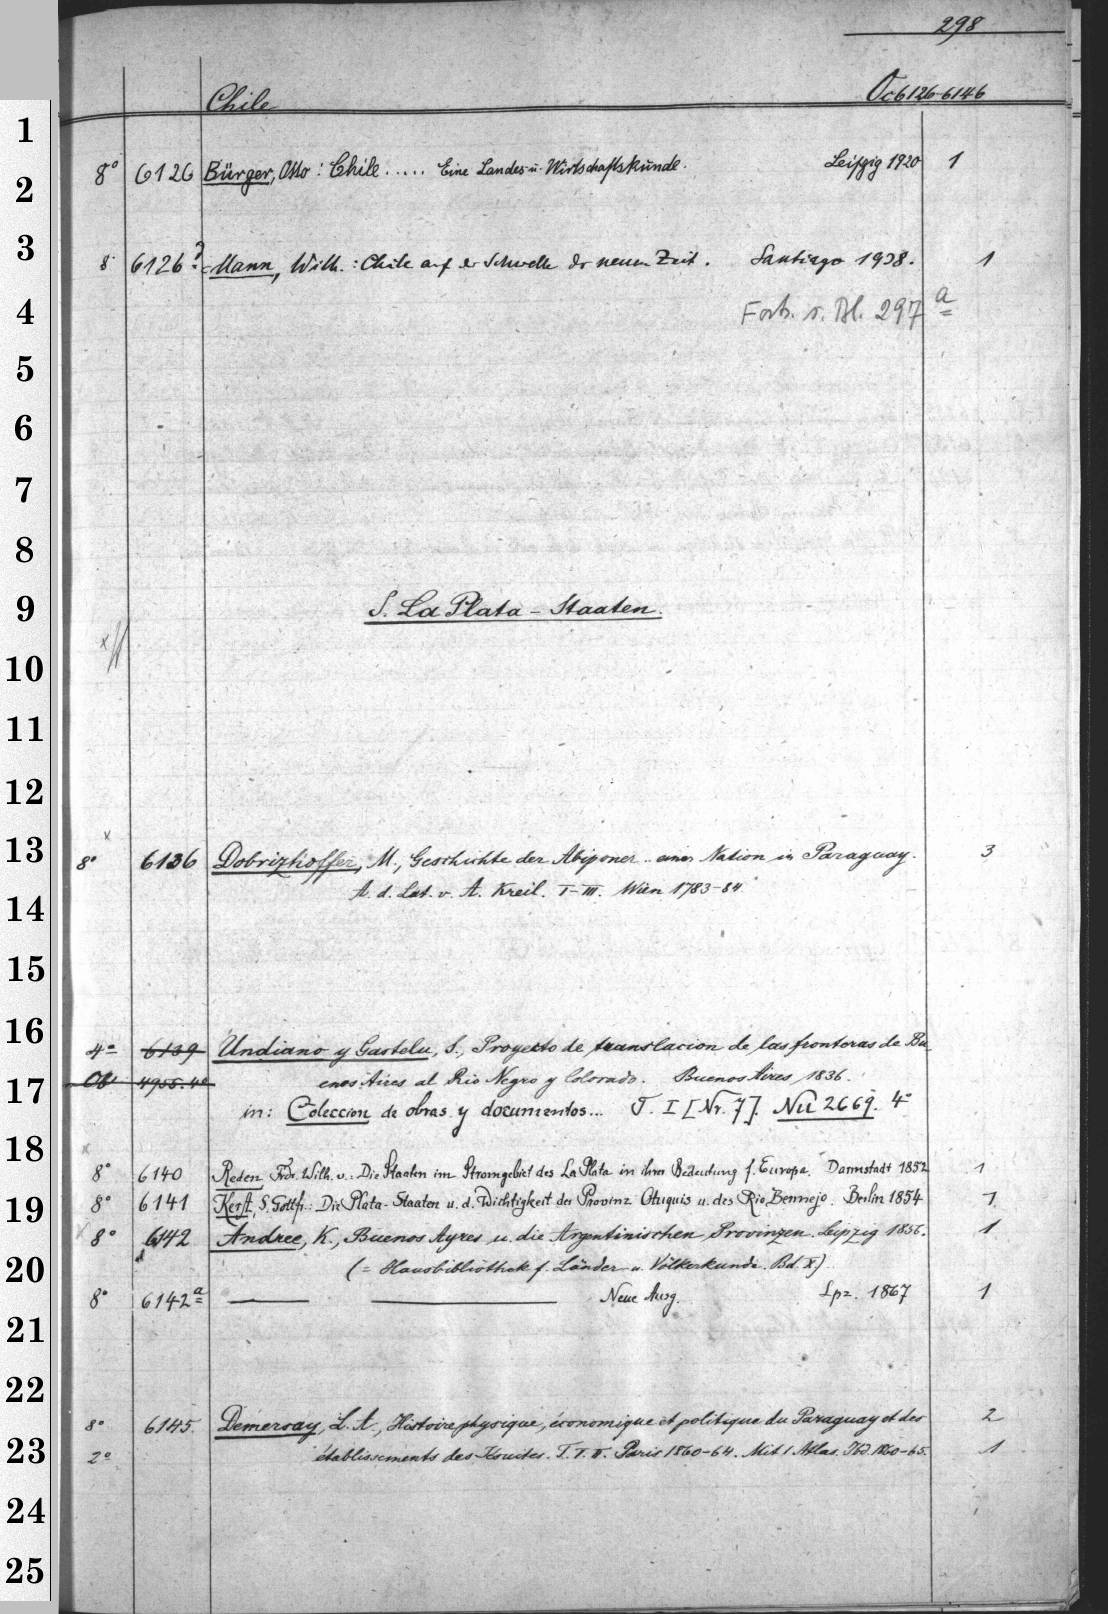 298
Chile Oc 6126-6146
1
8° 6126 Bürger, Otto: Chile ..... Eine Landes- u. Wirtschaftskunde. Leipzig 1920 1
2
3
8° 6126? Mann, Wilh.: Chile auf der Schwelle der neuen Zeit. Santiago 1938. 1
4
Forts. s. Bl. 297 a
5
6
7
8
9
S. La Plata - Staaten.
10
11
12
13
8° 6136 Dobrizhoffer, M., Geschichte der Abiponer .. einer Nation in Paraguay. 3
A. d. Lat. v. A. Kreil. I-III. Wien 1783-84
14
15
16
4° 6139 Undiano y Gastelu, S., Proyecto de translacion de las fronteras de Bu
17
4955. 4° enos Aires al Rio Negro y Colorado. Buenos Aires 1836.
in: Coleccion de obras y documentos... T. I [Nr. 7]. Nu 2669. 4°
18
8° 6140 Reden, Frdr. Wilh. v.: Die Staaten im Stromgebiet des La Plata in ihrer Bedeutung f. Europa. Darmstadt 1852 1
19
8° 6141 Kerst, S. Gottfr.: Die Plata-Staaten u. d. Wichtigkeit der Provinz Otuquis u. des Rio Bermejo. Berlin 1854 1
8° 6142 Andree, K., Buenos Ayres u. die Argentinischen Provinzen. Leipzig 1856. 1
20
(= Hausbibliothek f. Länder u. Völkerkunde. Bd. X.)
8° 6142a — — Neue Ausg. Lpz. 1867 1
21
22
8° 6145. Demersay, L. A., Histoire physique, économique et politique du Paraguay et des 2
23
2° établissements des Jésuites. T. I. II. Paris 1860-64. Mit 1 Atlas. Ibd. 1860-65. 1
24
25